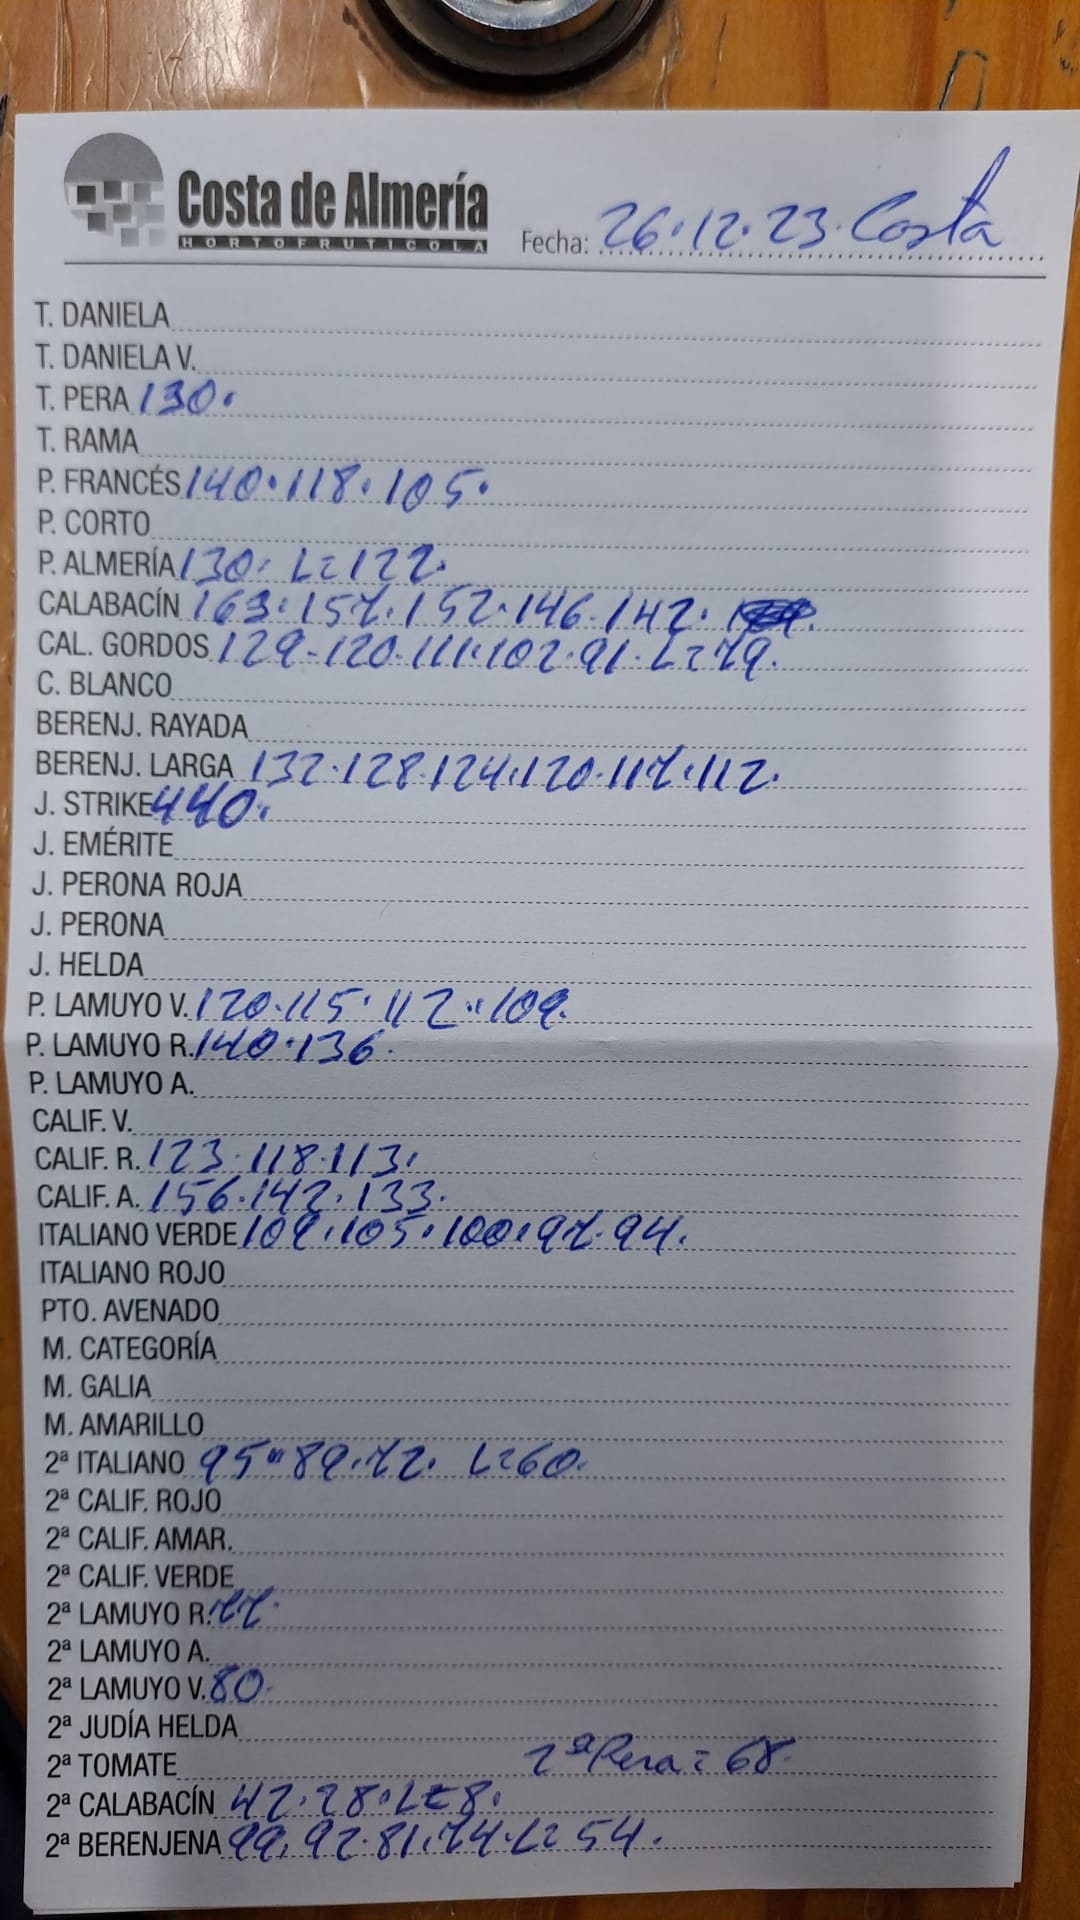 Costa de Almería
HORTOFRUTICOLA
Fecha: 26.12.23. Costa
T. DANIELA
T. DANIELA V.
T. PERA 130.
T. RAMA
P. FRANCÉS 140.118.105.
P. CORTO
P. ALMERÍA 130. L=122.
CALABACÍN 163.157.152.146.142.
CAL. GORDOS 129-120.111.102.91.L=79.
C. BLANCO
BERENJ. RAYADA
BERENJ. LARGA 132.128.124.120.117.112.
J. STRIKE 440.
J. EMÉRITE
J. PERONA ROJA
J. PERONA
J. HELDA
P. LAMUYO V. 120.115.112.109.
P. LAMUYO R. 140.136.
P. LAMUYO A.
CALIF. V.
CALIF. R. 123.118.113.
CALIF. A. 156.142.133.
ITALIANO VERDE 109.105.100.97.94.
ITALIANO ROJO
PTO. AVENADO
M. CATEGORÍA
M. GALIA
M. AMARILLO
2ª ITALIANO 95.89.72. L=60.
2ª CALIF. ROJO
2ª CALIF. AMAR.
2ª CALIF. VERDE
2ª LAMUYO R. 77.
2ª LAMUYO A.
2ª LAMUYO V. 80.
2ª JUDÍA HELDA
2ª TOMATE 2ª Pera = 68.
2ª CALABACÍN 42.28.L=8.
2ª BERENJENA 99.92.81.74.L=54.